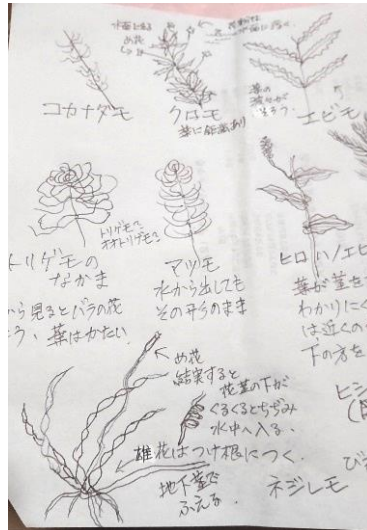 め花
コカナダモ
クロモ
葉に鋸歯あり
エビモ
トリゲモ?
オオトリゲモ?
トリゲモの
なかま
から見るとバラの花
う、葉はかたい
マツモ
水から出しても
その形のまま
ヒロハノエビ
葉が茎を
わかりにく
は近くの
下の方を
め花
結実すると
花茎の下が
くるくるとちぢみ
水中へ入る。
雄花はつけ根につく。
地下茎で
ふえる。
ネジレモ
ヒシ